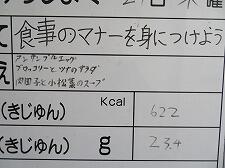 食事のマナーを身につけよう
アンサンブルエッグ
ブロッコリーとツナのサラダ
肉団子と小松菜のスープ
(きじゅん) Kcal 622
(きじゅん) g 23.4